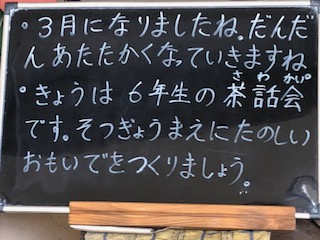 ・3月になりましたね。だんだ
ん あたたかくなっていきますね
・きょうは6年生の茶話会
さわかい
です。そつぎょうまえにたのしい
おもいでをつくりましょう。